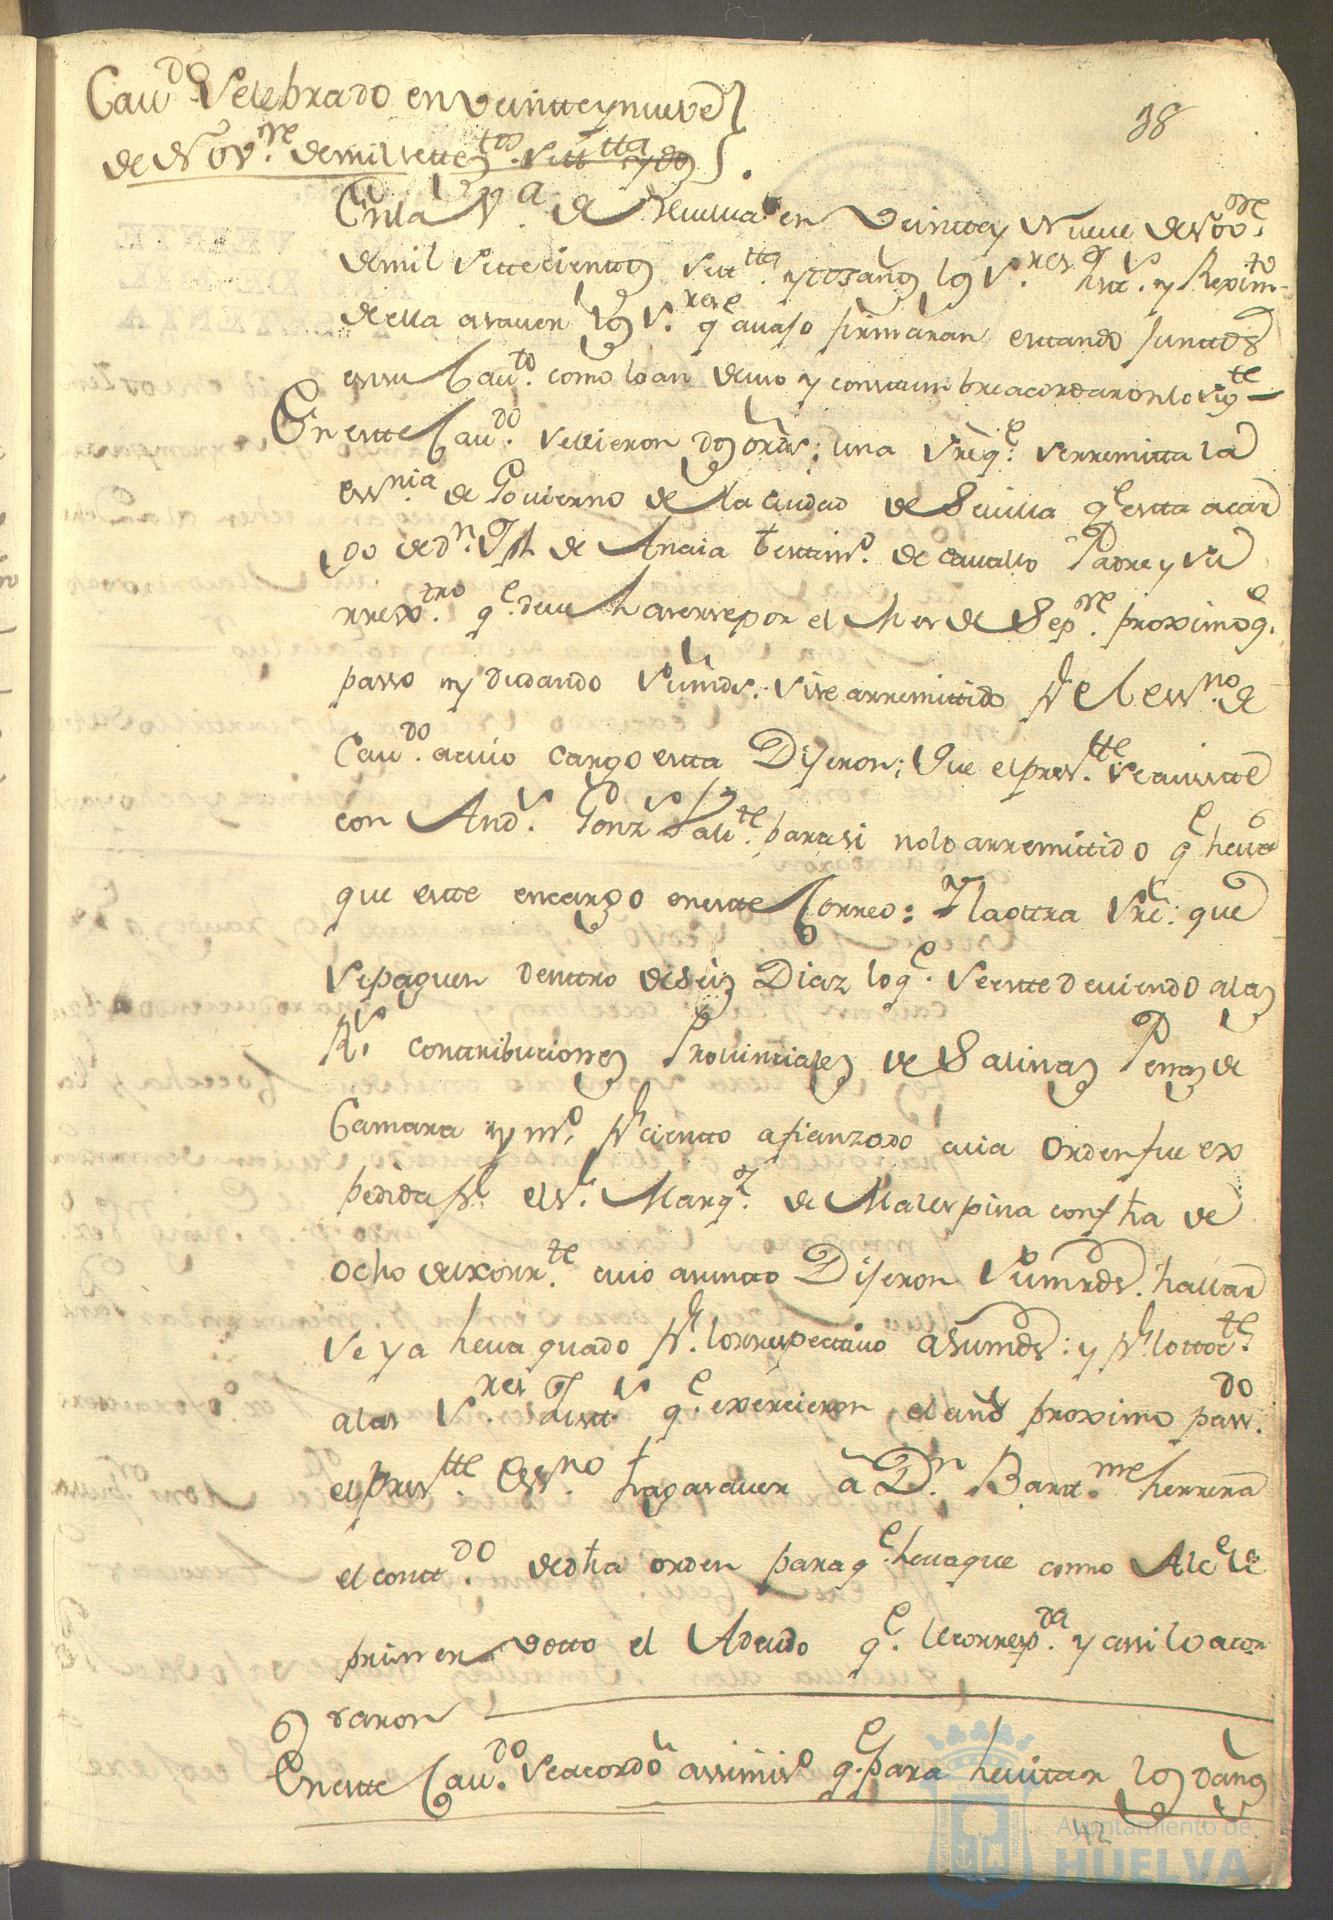 Caudo. Selebrado en Veintteynueve
de Novre. de mil settesttos. settta ydos
38
En la Va. de Huelua en Veinttey Nueve de Novre.
de mil settecienttos settta. ydos años los Sres. Justa. y Reximto
de ella asauer los Sres. qe auajo firmaran esttando junttos
en su Cauto. como loan de uso y constumbre acordaron lo sigte
En estte Caudo. se lelleron dos ords: una sre qe. se rremitta la
essnia de Govierno de la ciudad de Sevilla qe estta acar
go de dn. Jph de Ancia testimo. de cauallo Padre y su
rrexttro qe. deue haserse por el Mes de Sepre. proximo qe.
passo y dudando sumds. si se arremittido pr el essno. de
Caudo. acuio cargo estta Dijeron; Que el prestte. se auistte
con Ands. Gonzs para si nolo arremittido qe heua
que estte encargo en estte Correo: Y la ottra sre: que
se paguen denttro de seis Diaz lo qe. se estte deviendo a las
Rs. conttribuciones Provinciales de Salinas Penas de
Camara y mo. pr ciento afianzado cuia orden fue ex
pedida pr. el Sr. Marqz. de Malespina con fha de
ocho del xorrte. cuio asunto Dijeron Sumrds. hallar
se ya heuaquado pr. lo rrespectiuo a Sumds: y pr lo tocte.
a los Sres. Justs. qe. exercieron el año proximo passdo.
el prestte. Essno. haga sauer â Dn. Bartme. herrera
el conttdo. de dha orden para qe. heuaque como Alce de
primer votto el Adeudo qe. le corresp.da y assi lo acor
daron
En estte Caudo. se acordô assimismo qe. para heuitar los daños
42
Ayuntamiento de
HUELVA